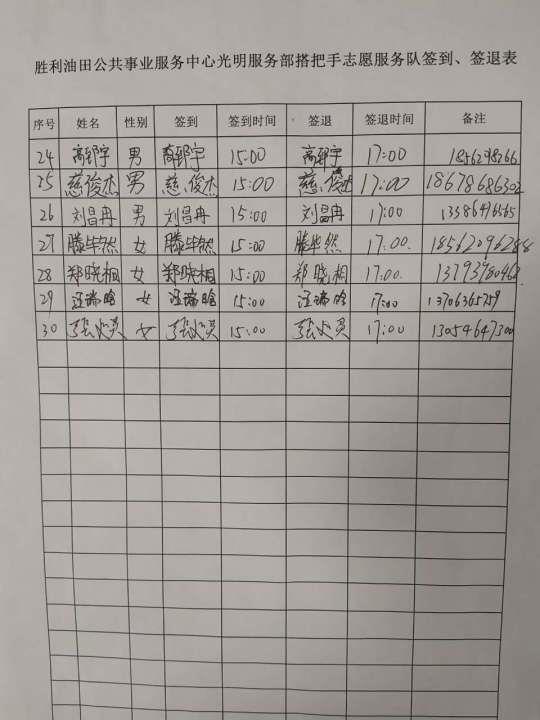 胜利油田公共事业服务中心光明服务部搭把手志愿服务队签到、签退表
序号 姓名 性别 签到 签到时间 签退 签退时间 备注
24 高郅宇 男 高郅宇 15:00 高郅宇 17:00
25 慈俊杰 男 慈俊杰 15:00 慈俊杰 17:00 18678686302
26 刘昌冉 男 刘昌冉 15:00 刘昌冉 17:00
27 滕毕然 女 滕毕然 15:00 滕毕然 17:00.
28 郑晓相 女 郑晓相 15:00 郑晓相 17:00.
29 女 15:00 17:00 13706365759
30 女 15:00 17:00 13054647300